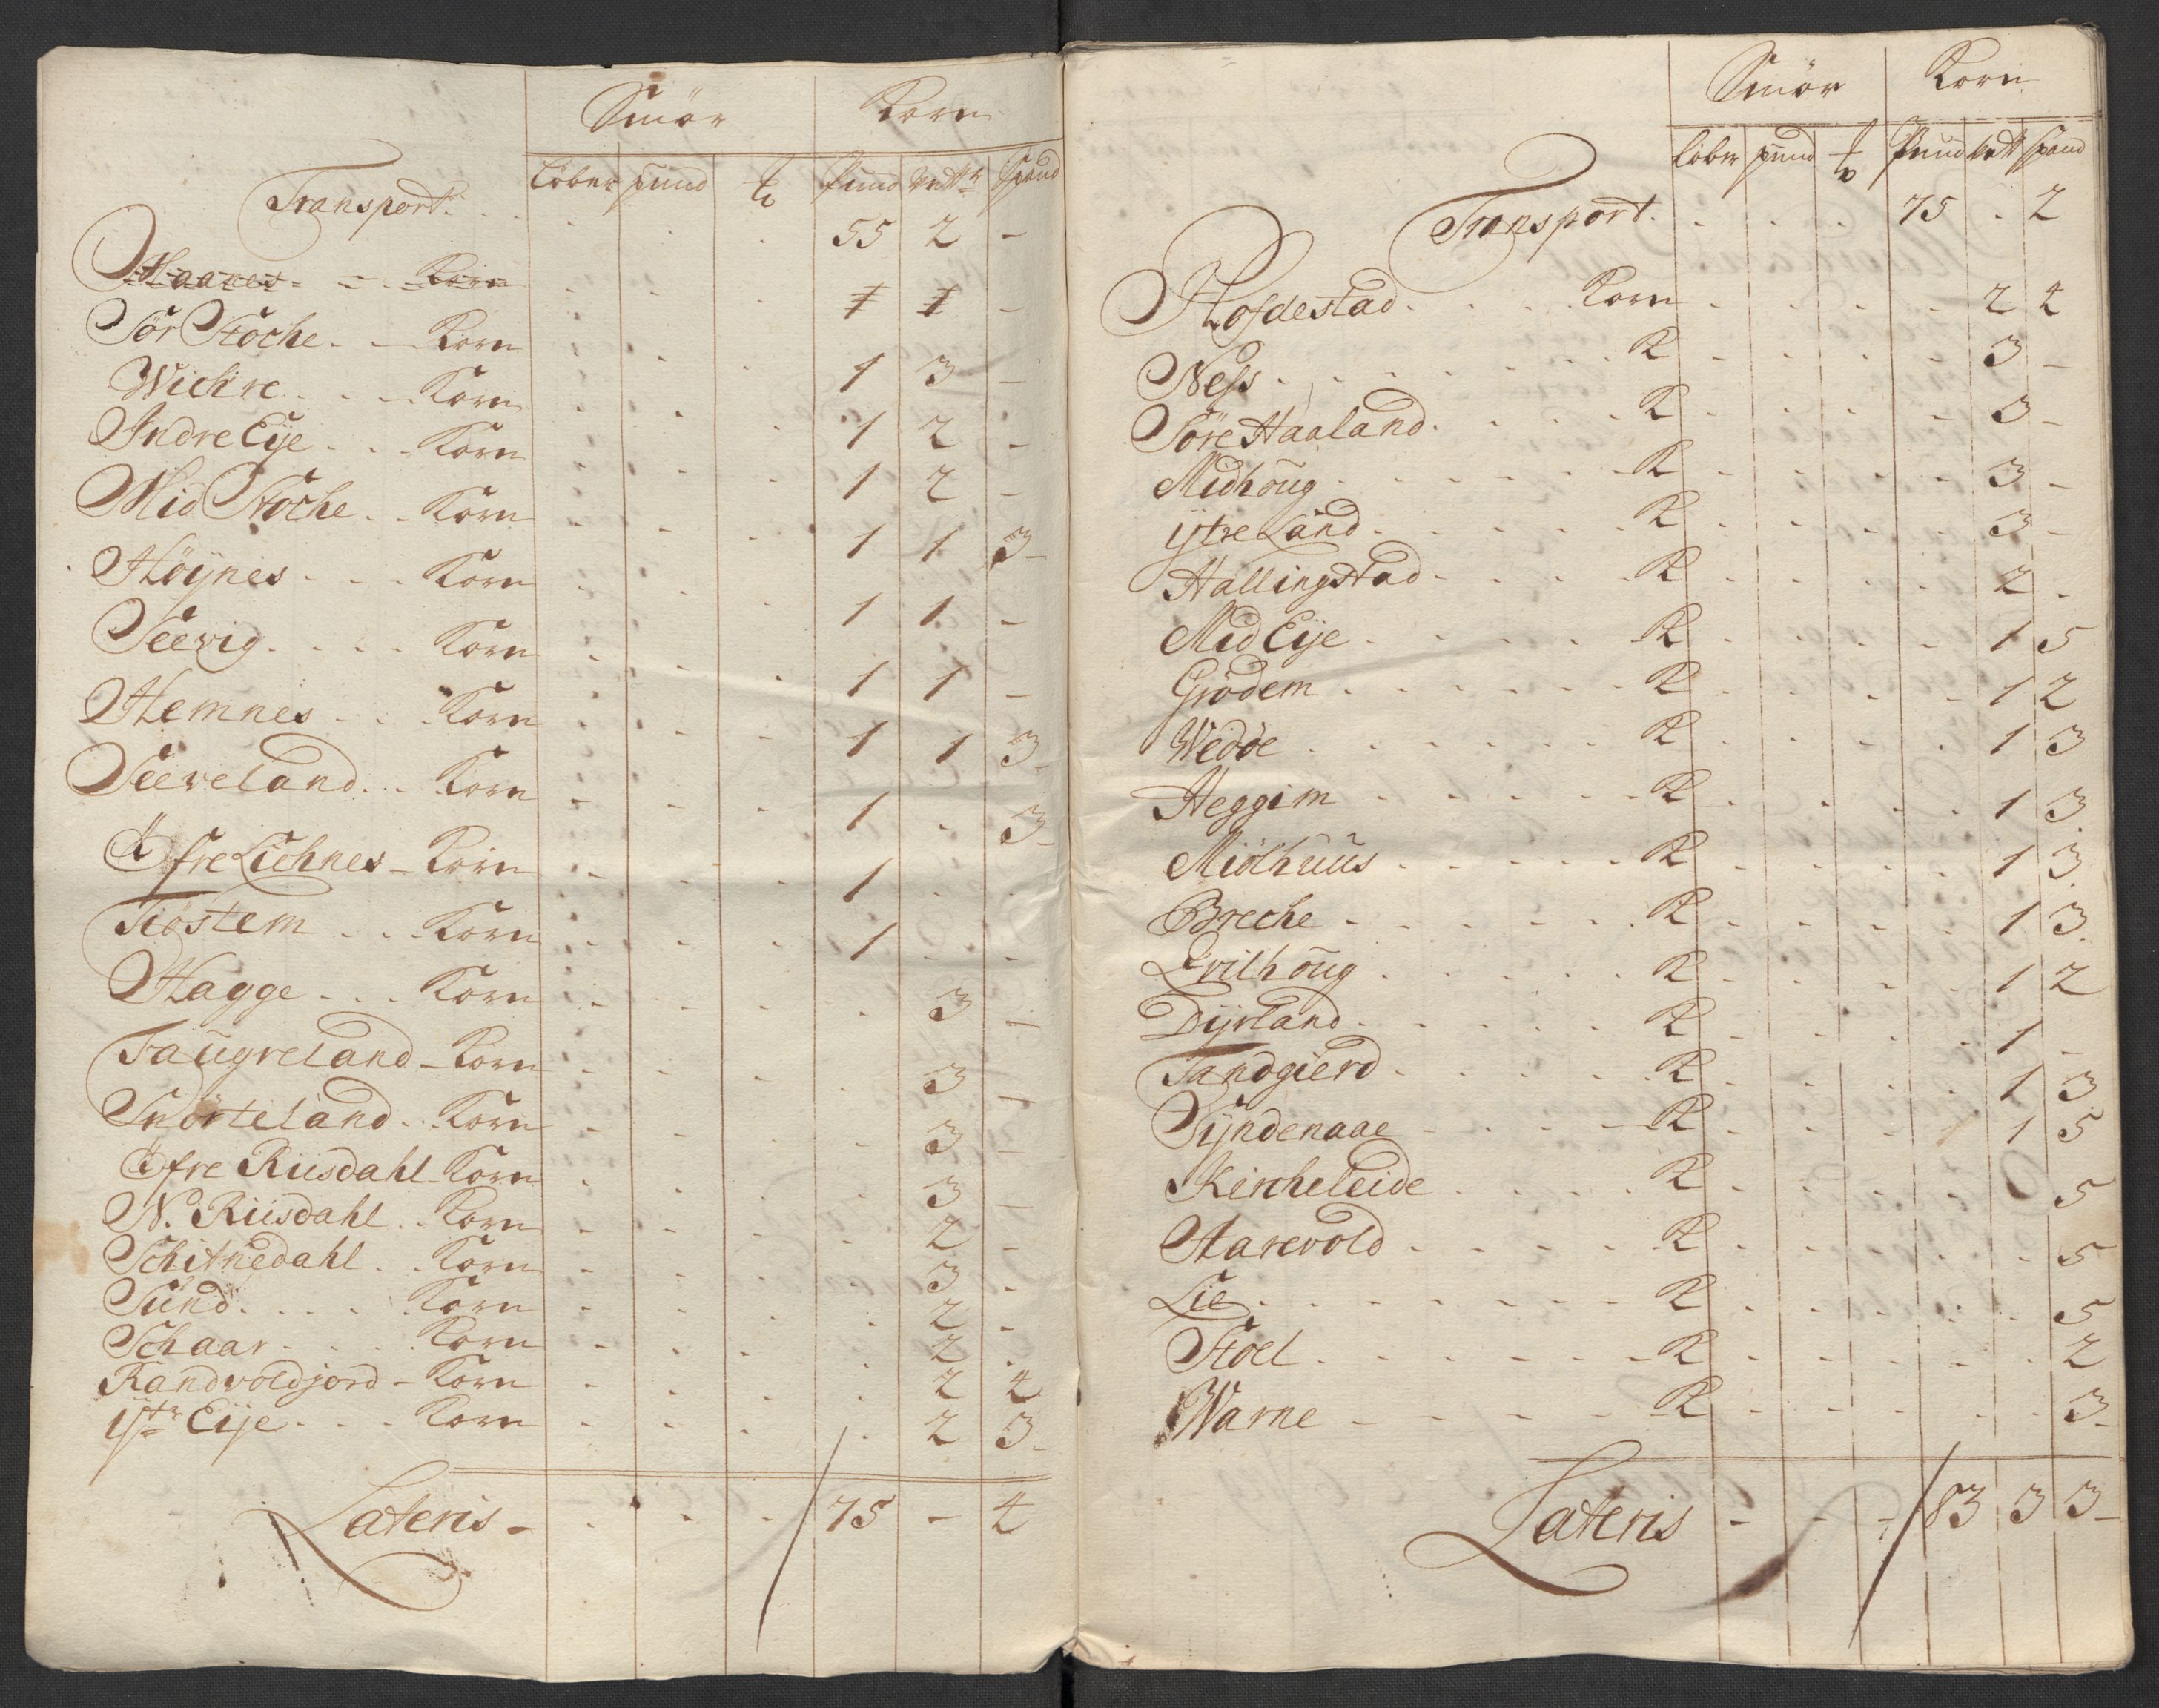 Smör Korn
Löber pund ℔ Pund Vett.r Spand
Transport . . . . . . 55 2 -
Haanes . - . Korn . . . 1 1 -
Sör Stoche . - Korn . . . 1 3 -
Wichre . . . Korn . . . 1 2 -
Indre Eije . . . Korn . . . 1 2 -
Mid Stoche . . Korn . . . 1 1 3
Höijnes . . . Korn . . . 1 1 -
Seevig . . . . Korn . . . 1 1 -
Hemnes . . . Korn . . . 1 1 3
Seeveland . . Korn . . . 1 . 3
Öfre Lichnes - Korn . . . 1 . .
Tiøstem . . . Korn . . . 1 . .
Hagge . . . Korn . . . . 3 -
Taugreland - Korn . . . . 3 -
Snorteland . . Korn . . . . 3 -
Öfre Riisdahl - Korn . . . . 3 -
N. Riisdahl . . Korn . . . . 2 -
Schitnedahl . . Korn . . . . 3 .
Sund . . . . Korn . . . . 2 .
Schaar . . . . Korn . . . . 2 .
Randvoldjord - Korn . . . . 2 4
ijtr Eije . . . Korn . . . . 2 3
Lateris - . . . 75 - 4
Smör Korn
Löber pund ℔ Pund Vett Spand
Transport . . . . 75 . 2
Hofdestad . . . Korn . . . . 2 4
Ness . . . . . . K . . . . 3 -
Söre Haaland . . . . K . . . . 3 -
Midhoug . . . . . K . . . . 3 -
ijtre Land . . . . . K . . . . 3 -
Hallingstad . . . . K . . . . 2 .
Mid Eije . . . . . K . . . . 1 5
Grödem . . . . . . K . . . . 1 2
Wedöe . . . . . . K . . . . 1 3
Heggim . . . . . . K . . . . 1 3
Miölhuus . . . . . K . . . . 1 3
Breche . . . . . . K . . . . 1 3
Qvilhoug . . . . . K . . . . 1 2
Dijrland . . . . . K . . . . 1 -
Sandgierd . . . . . K . . . . 1 3
Sijndenaae . . . . K . . . . 1 5
Kircheleide . . . . K . . . . . 5
Harevold . . . . . K . . . . . 5
Lie . . . . . . . K . . . . . 5
Stoel . . . . . . K . . . . . 2
Warne . . . . . . K . . . . . 3
Lateris - - - 83 3 3